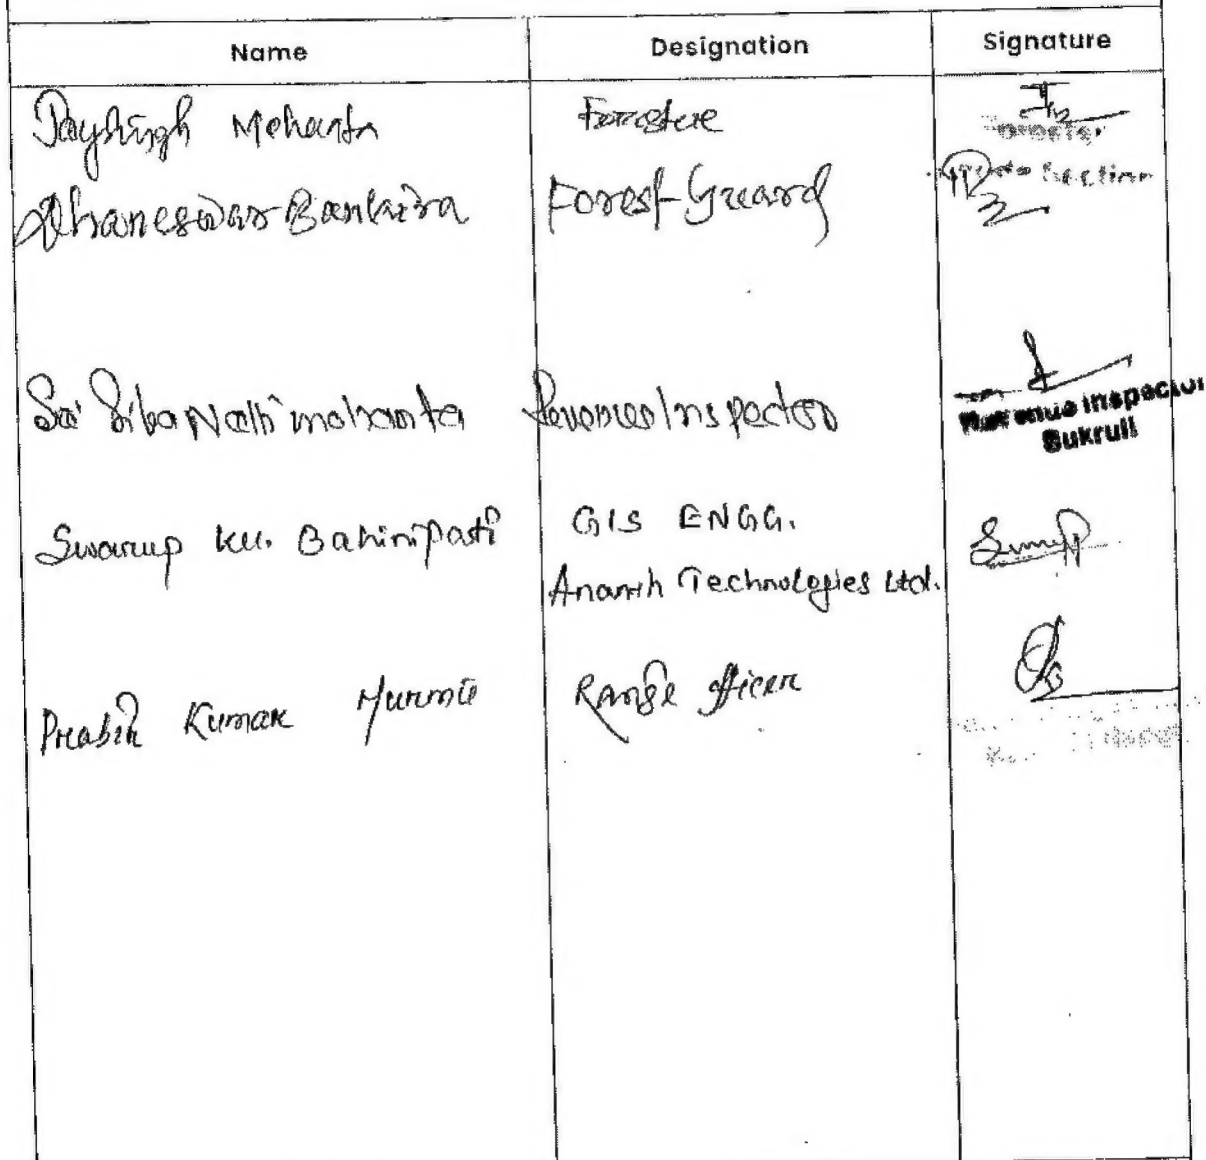 Name Designation Signature
Jaysingh Mohanta Forester
Forester
Dhaneswar Bankira Forest Guard
Section
Sri Siba Nath mohanta Revenue Inspector
Revenue Inspector
Sukruli
Swarup Ku. Bahinipati GIS ENGG.
Ananth Technologies Ltd.
Prabir Kumar Murmu Range officer